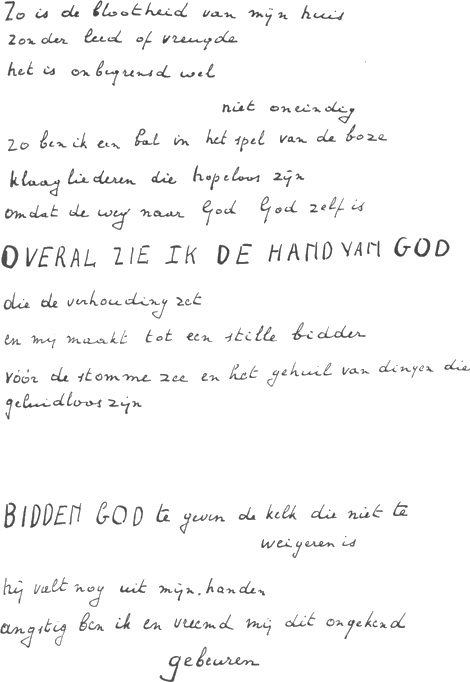 Zo is de blootheid van mijn huis
zonder leed of vreugde
het is onbegrensd wel
niet oneindig
zo ben ik een bal in het spel van de boze
klaagliederen die hopeloos zijn
omdat de weg naar God God zelf is
OVERAL ZIE IK DE HAND VAN GOD
die de verhouding zet
en mij maakt tot een stille bidder
vóór de stomme zee en het gehuil van dingen die
geluidloos zijn
BIDDEN GOD te geven de kelk die niet te
weigeren is
hij valt nog uit mijn handen
angstig ben ik en vreemd mij dit ongekend
gebeuren